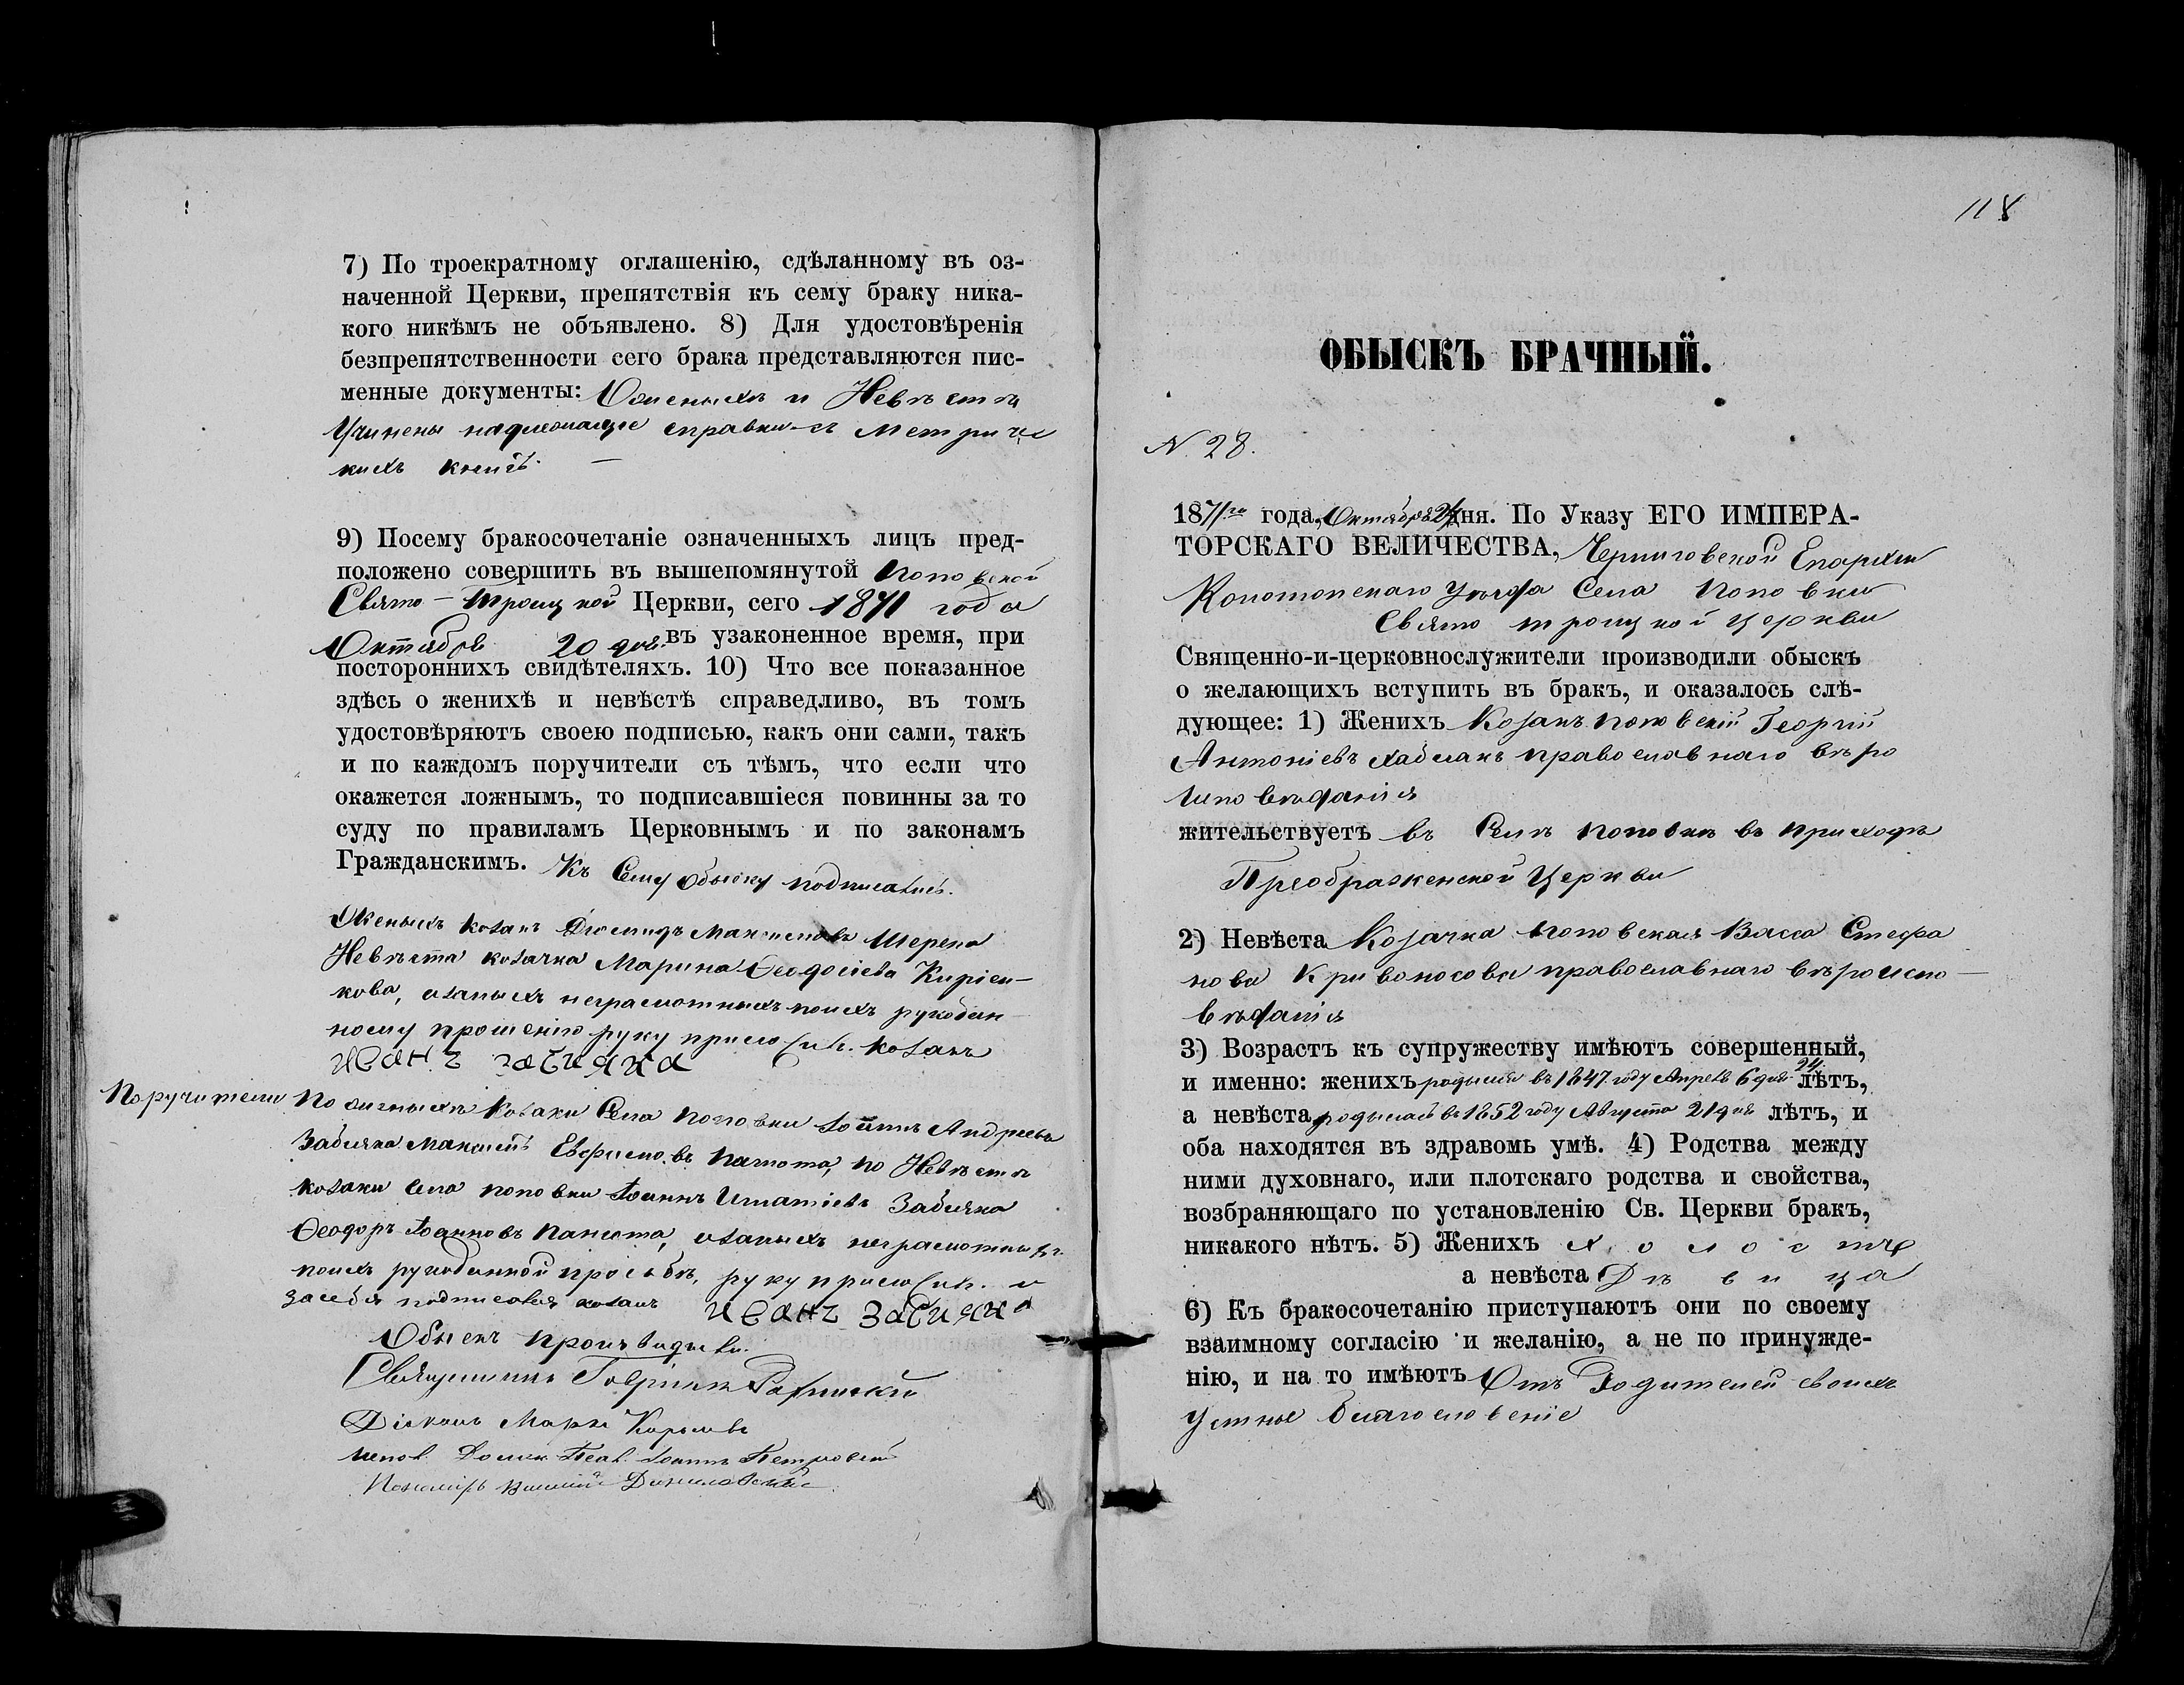 7) По троекратному оглашенію, сдѣланному въ оз-
наченной Церкви, препятствія къ сему браку ника-
кого никѣмъ не объявлено. 8) Для удостовѣренія
безпрепятственности сего брака представляются пис-
менные документы: О женыхѣ и Невѣстѣ
Учинены надлежащіе справки съ Метричес
кихъ книгъ. —
9) Посему бракосочетаніе означенныхъ лицъ пред-
положено совершить въ вышепомянутой Поповской
Свято-Троицкой Церкви, сего 1871 года
Октября 20 дня. въ узаконенное время, при
постороннихъ свидѣтеляхъ. 10) Что все показанное
здѣсь о женихѣ и невѣстѣ справедливо, въ томъ
удостовѣряютъ своею подписью, какъ они сами, такъ
и по каждомъ поручители съ тѣмъ, что если что
окажется ложнымъ, то подписавшіеся повинны за то
суду по правиламъ Церковнымъ и по законамъ
Гражданскимъ. Къ Сему обыску подписались.
Женыхъ козакъ Діомидъ Максимовъ Шерепа
Невѣста козачка Марина Ѳеодосіева Киріен-
кова, азаныхъ неграмотныхъ поихъ рукодан-
ному прошенію руку приложилъ козакъ
иванъ забияка
Поручители По женыхѣ Козаки Села Поповки Іоаннъ Андреевъ
Забияка Максимъ Евфимовъ Панюта, по Невѣстѣ
козаки села Поповки Іоаннъ Игнатіевъ Забияка
Ѳеодоръ Іоанновъ Панюта, азаныхъ неграмотныхъ
поихъ рукоданной прозьбѣ, руку приложилъ и
засебя подписался козакъ иванъ забияка
Обыскъ производили.
Священникъ Гавріилъ
Діаконъ Марко
Іоаннъ Петровскій
Пономарь Василій Даниловскій
118
ОБЫСКЪ БРАЧНЫЙ.
N. 28.
1871го года, Октября 24 дня. По Указу ЕГО ИМПЕРА-
ТОРСКАГО ВЕЛИЧЕСТВА, Черниговской Епархіи
Конотопскаго Уѣзда Села Поповки
Свято Троицкой церкви
Священно-и-церковнослужители производили обыскъ
о желающихъ вступить въ бракъ, и оказалось слѣ-
дующее: 1) Женихъ Козакъ Поповскій Георгій
Антоніевъ православнаго вѣро
исповѣданія
жительствуетъ въ Селѣ Поповкѣ въ приходѣ
Преображенской Церкви
2) Невѣста Козачка Поповская Васса Стефа
нова Кривоносова православнаго вѣроиспо—
вѣданія
3) Возрастъ къ супружеству имѣютъ совершенный,
и именно: женихъ родился въ 1847. году Апреля 6 дня 24. лѣтъ,
а невѣста родилась въ 1852 году Августа 21 дня лѣтъ, и
оба находятся въ здравомь умѣ. 4) Родства между
ними духовнаго, или плотскаго родства и свойства,
возбраняющаго по установленію Св. Церкви бракъ,
никакого нѣтъ. 5) Женихъ холостъ
а невѣста Дѣвица
6) Къ бракосочетанію приступаютъ они по своему
взаимному согласію и желанію, а не по принужде-
нію, и на то имѣютъ Отъ Родителей своихъ
Устное благословеніе